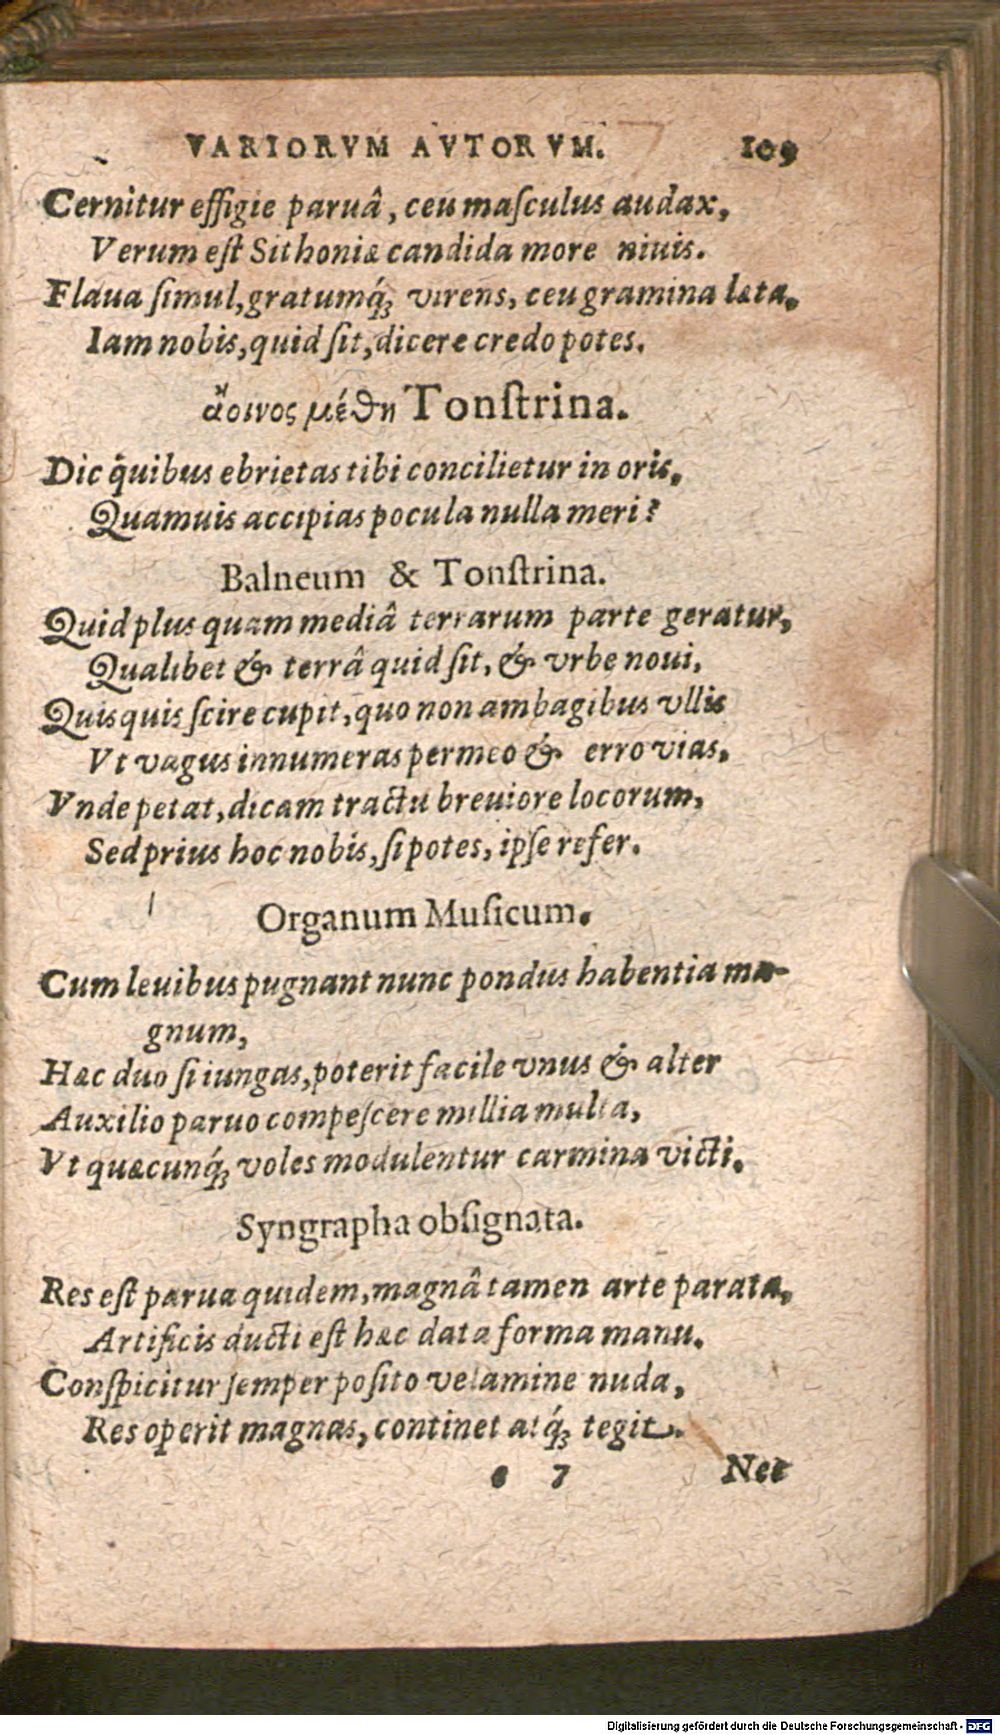 VARIORVM AVTORVM. 109
Cernitur effigie paruâ, ceu maſculus audax,
Verum eſt Sithoniæ candida more niuis.
Flaua ſimul, gratumq́; virens, ceu gramina læta,
Iam nobis, quid ſit, dicere credo potes.
ἄοινος μέθη Tonſtrina.
Dic q̃uibus ebrietas tibi concilietur in oris,
Quamuis accipias pocula nulla meri?
Balneum & Tonſtrina.
Quid plus quam mediâ terrarum parte geratur,
Qualibet & terrâ quid ſit, & vrbe noui,
Quisquis ſcire cupit, quo non ambagibus vllis
Vt vagus innumeras permeo & erro vias,
Vnde petat, dicam tractu breuiore locorum,
Sed prius hoc nobis, ſi potes, ipſe refer.
Organum Muſicum.
Cum leuibus pugnant nunc pondus habentia ma-
gnum,
Hæc duo ſi iungas, poterit facile vnus & alter
Auxilio paruo compeſcere millia multa,
Vt quæcunq́; voles modulentur carmina victi.
Syngrapha obſignata.
Res eſt parua quidem, magnâ tamen arte parata,
Artificis ducti eſt hæc data forma manu.
Conſpicitur ſemper poſito velamine nuda,
Res operit magnas, continet atq́; tegit.
e 7 Nec
Digitalisierung gefördert durch die Deutsche Forschungsgemeinschaft - DFG